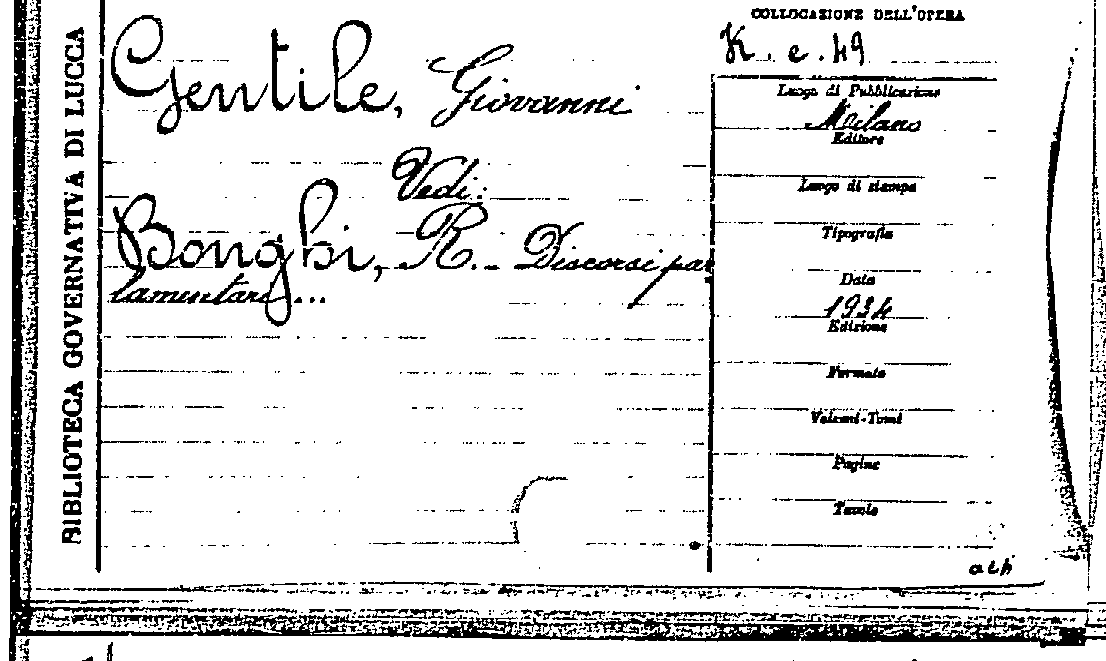 BIBLIOTECA GOVERNATIVA DI LUCCA
Gentile, Giovanni
Vedi:
Bonghi, R. - Discorsi par
lamentari...
COLLOCAZIONE DELL'OPERA
K. e. 49
Luogo di Pubblicazione
Milano
Editore
Luogo di stampa
Tipografia
Data
1934
Edizione
Formato
Volumi-Tomi
Pagine
Tavole